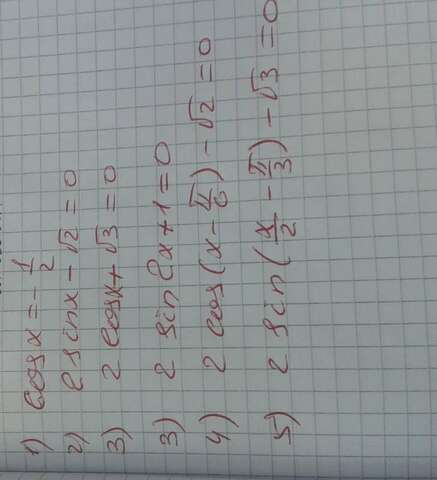 1) cos x = - 1/2
2) 2 sin x - √2 = 0
3) 2 cos x + √3 = 0
3) 2 sin 2x + 1 = 0
4) 2 cos (x - π/6) - √2 = 0
5) 2 sin (x/2 - π/3) - √3 = 0